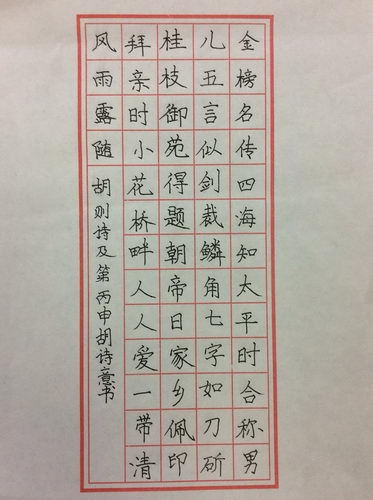 金榜名传四海知太平时合称男
儿五言似剑裁鳞角七字如刀斫
桂枝御苑得题朝帝日家乡佩印
拜亲时小花桥畔人人爱一带清
风雨露随
胡则诗及第丙申胡诗意书